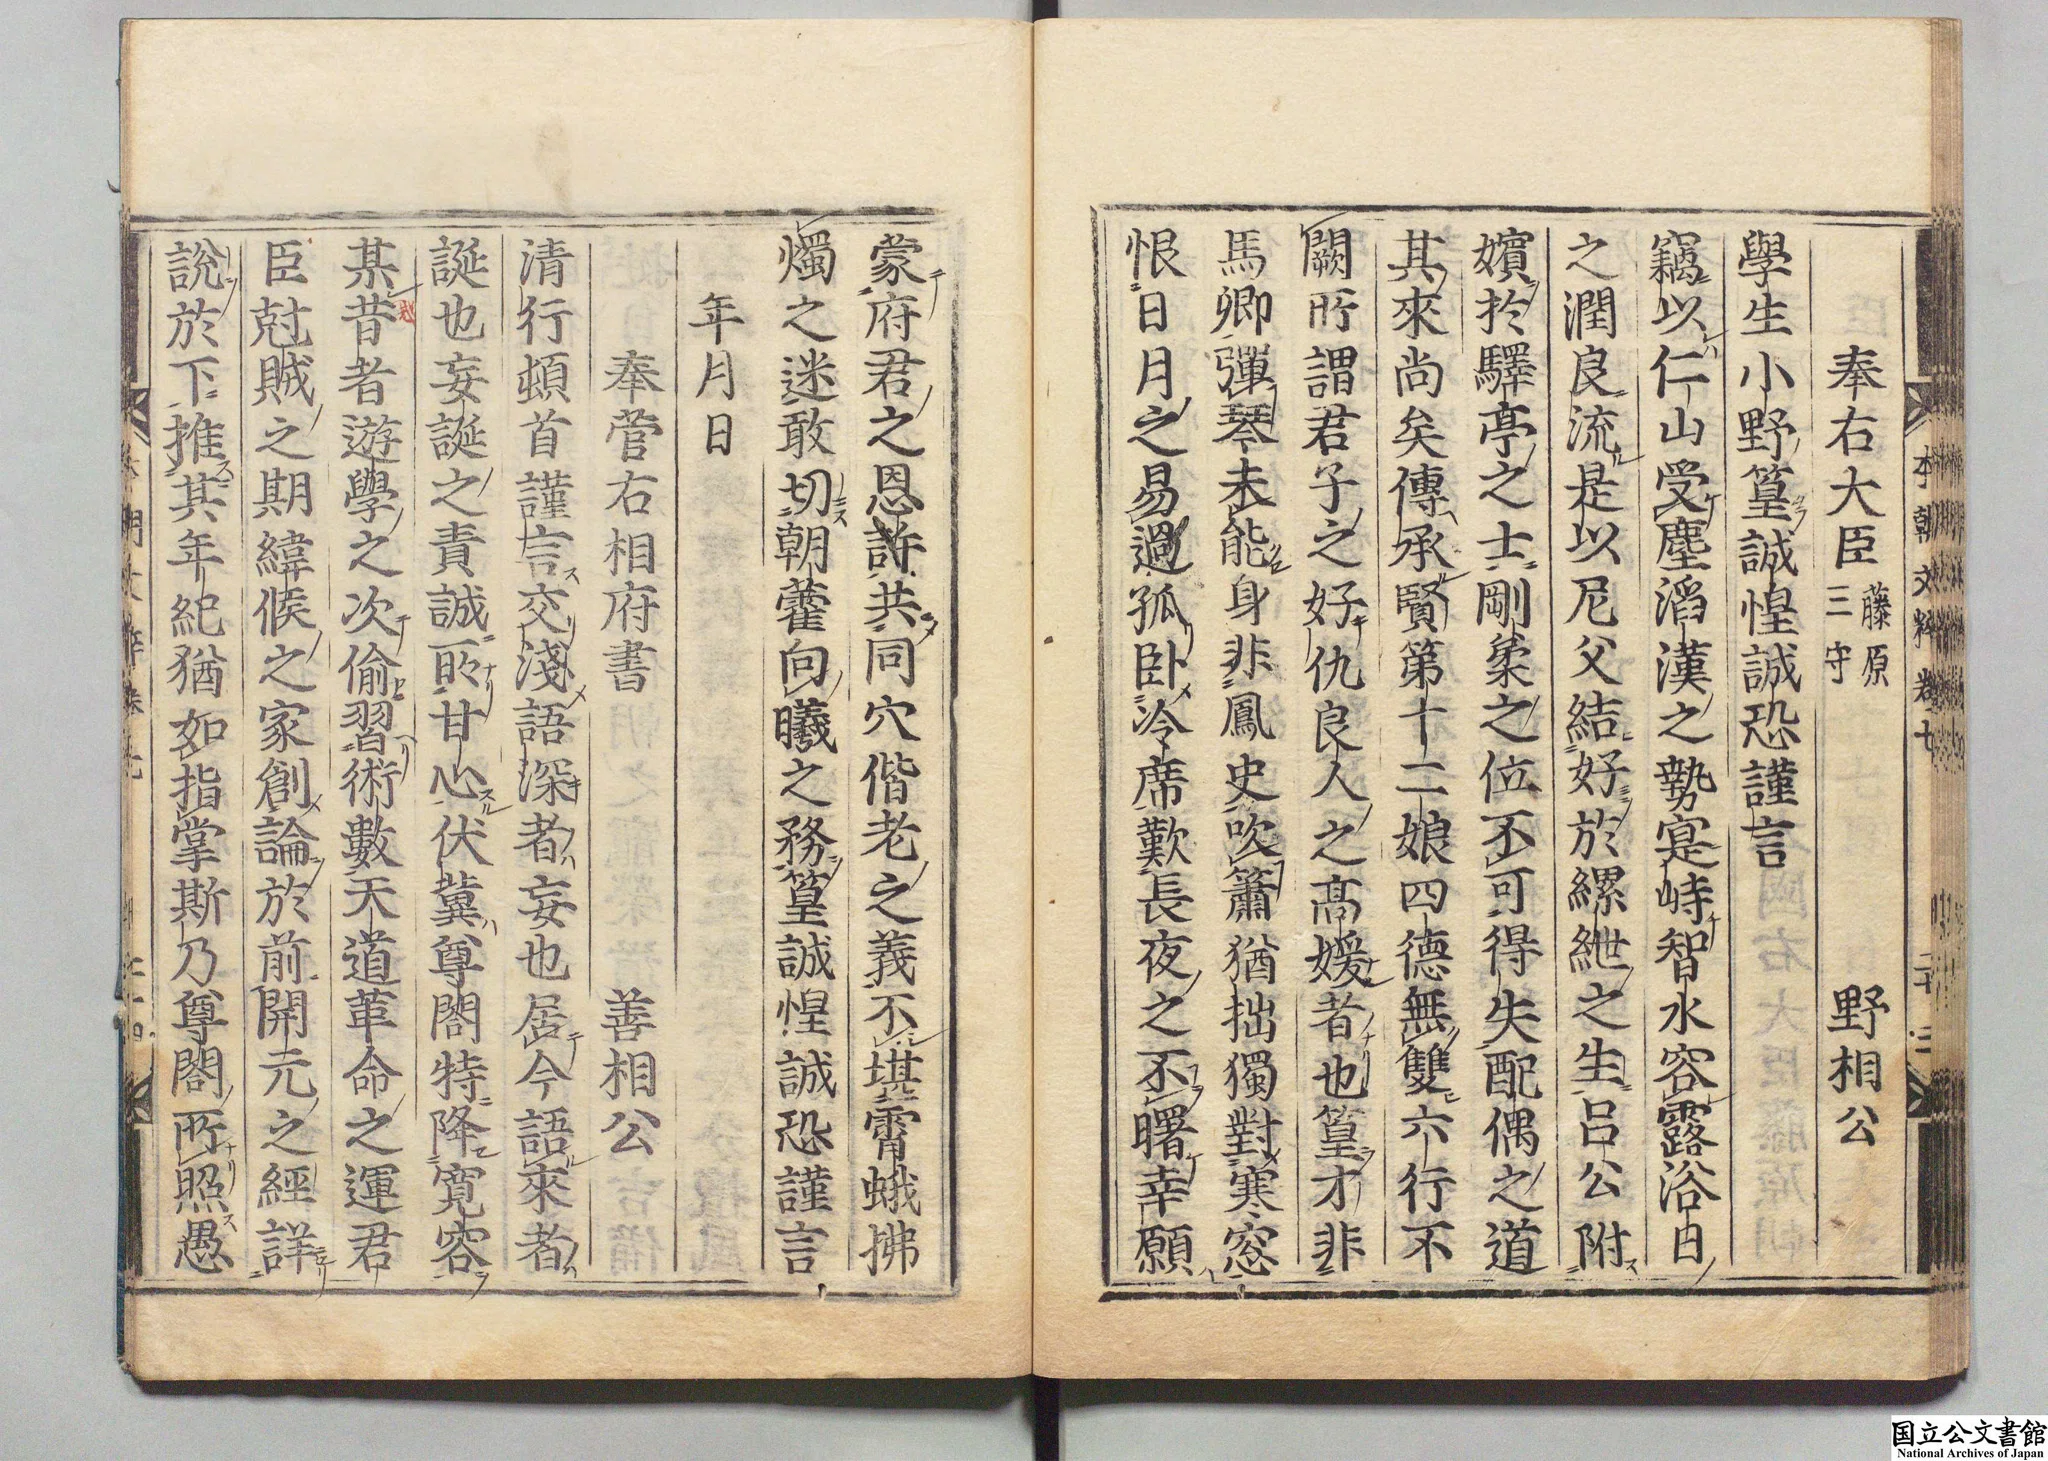 奉右大臣 藤原三守 野相公
學生小野篁誠惶誠恐謹言
竊以仁山受塵滔漢之勢寔峙智水容露浴日
之潤良流是以尼父結好於縲紲之生呂公附
嬪於驛亭之士剛柔之位不可得失配偶之道
其來尚矣傳承賢第十二娘四德無雙六行不
闕所謂君子之好仇良人之高媛者也篁才非
馬卿彈琴未能身非鳳史吹簫猶拙獨對寒窓
恨日月之易過孤臥冷席歎長夜之不曙幸願
本朝文粹卷七 二十三
蒙府君之恩許共同穴偕老之義不堪霄蛾拂
燭之迷敢切朝藿向曦之務篁誠惶誠恐謹言
年月日
奉菅右相府書 善相公
清行頓首謹言交淺語深者妄也居今語來者
誕也妄誕之責誠所甘心伏冀尊閤特降寬容
某昔者遊學之次偷習術數天道革命之運君
臣尅賊之期緯候之家創論於前開元之經詳
說於下推其年紀猶如指掌斯乃尊閤所照愚
国立公文書館
National Archives of Japan